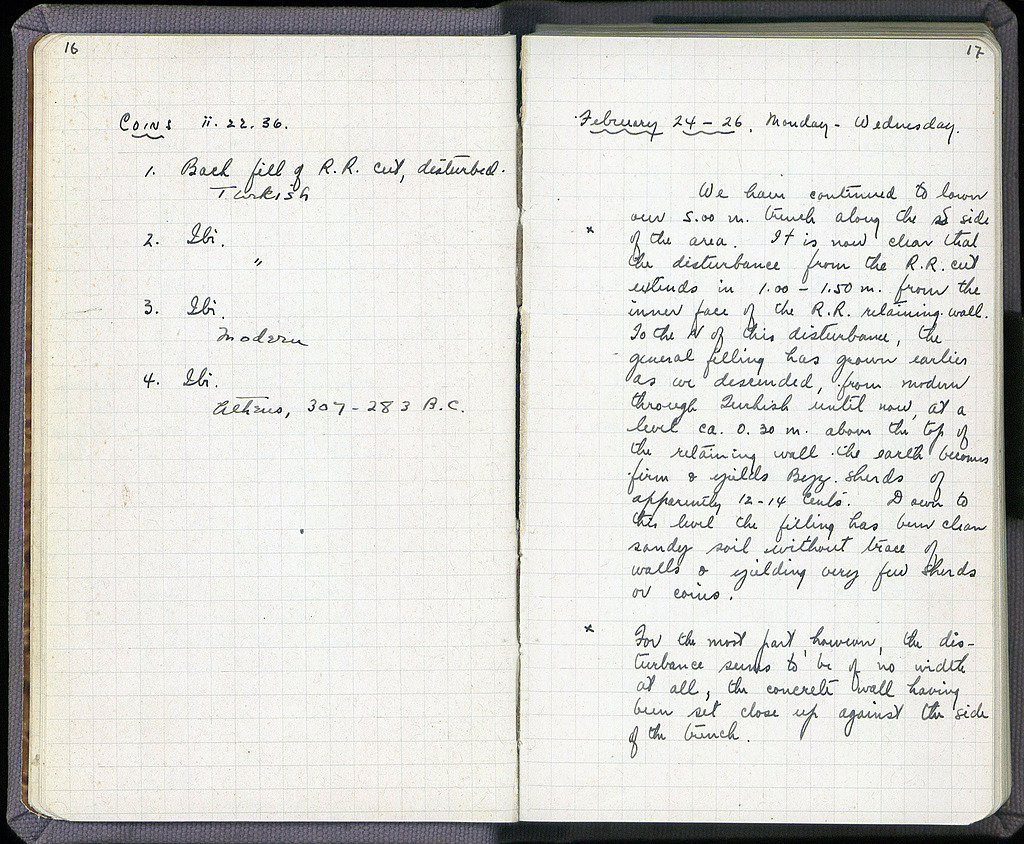 16
Coins ii. 22. 36.
1. Back fill of R.R. cut, disturbed.
Turkish
2. Ibi.
"
3. Ibi.
Modern
4. Ibi.
Athens, 307-283 B.C.
17
February 24-26, Monday - Wednesday.
We have continued to lower
our 5.00 m. trench along the S side
x of the area. It is now clear that
the disturbance from the R.R. cut
extends in 1.00 - 1.50 m. from the
inner face of the R.R. retaining wall.
To the N of this disturbance, the
general filling has grown earlier
as we descended, from modern
through Turkish until now, at a
level ca. 0.30 m. above the top of
the retaining wall the earth becomes
firm & yields Byz. sherds of
apparently 12-14 cents. Down to
this level the filling has been clean
sandy soil without trace of
walls & yielding very few sherds
or coins.
x For the most part, however, the dis-
turbance seems to be of no width
at all, the concrete wall having
been set close up against the side
of the trench.